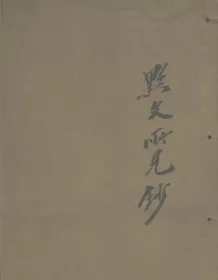 黔文所見鈔